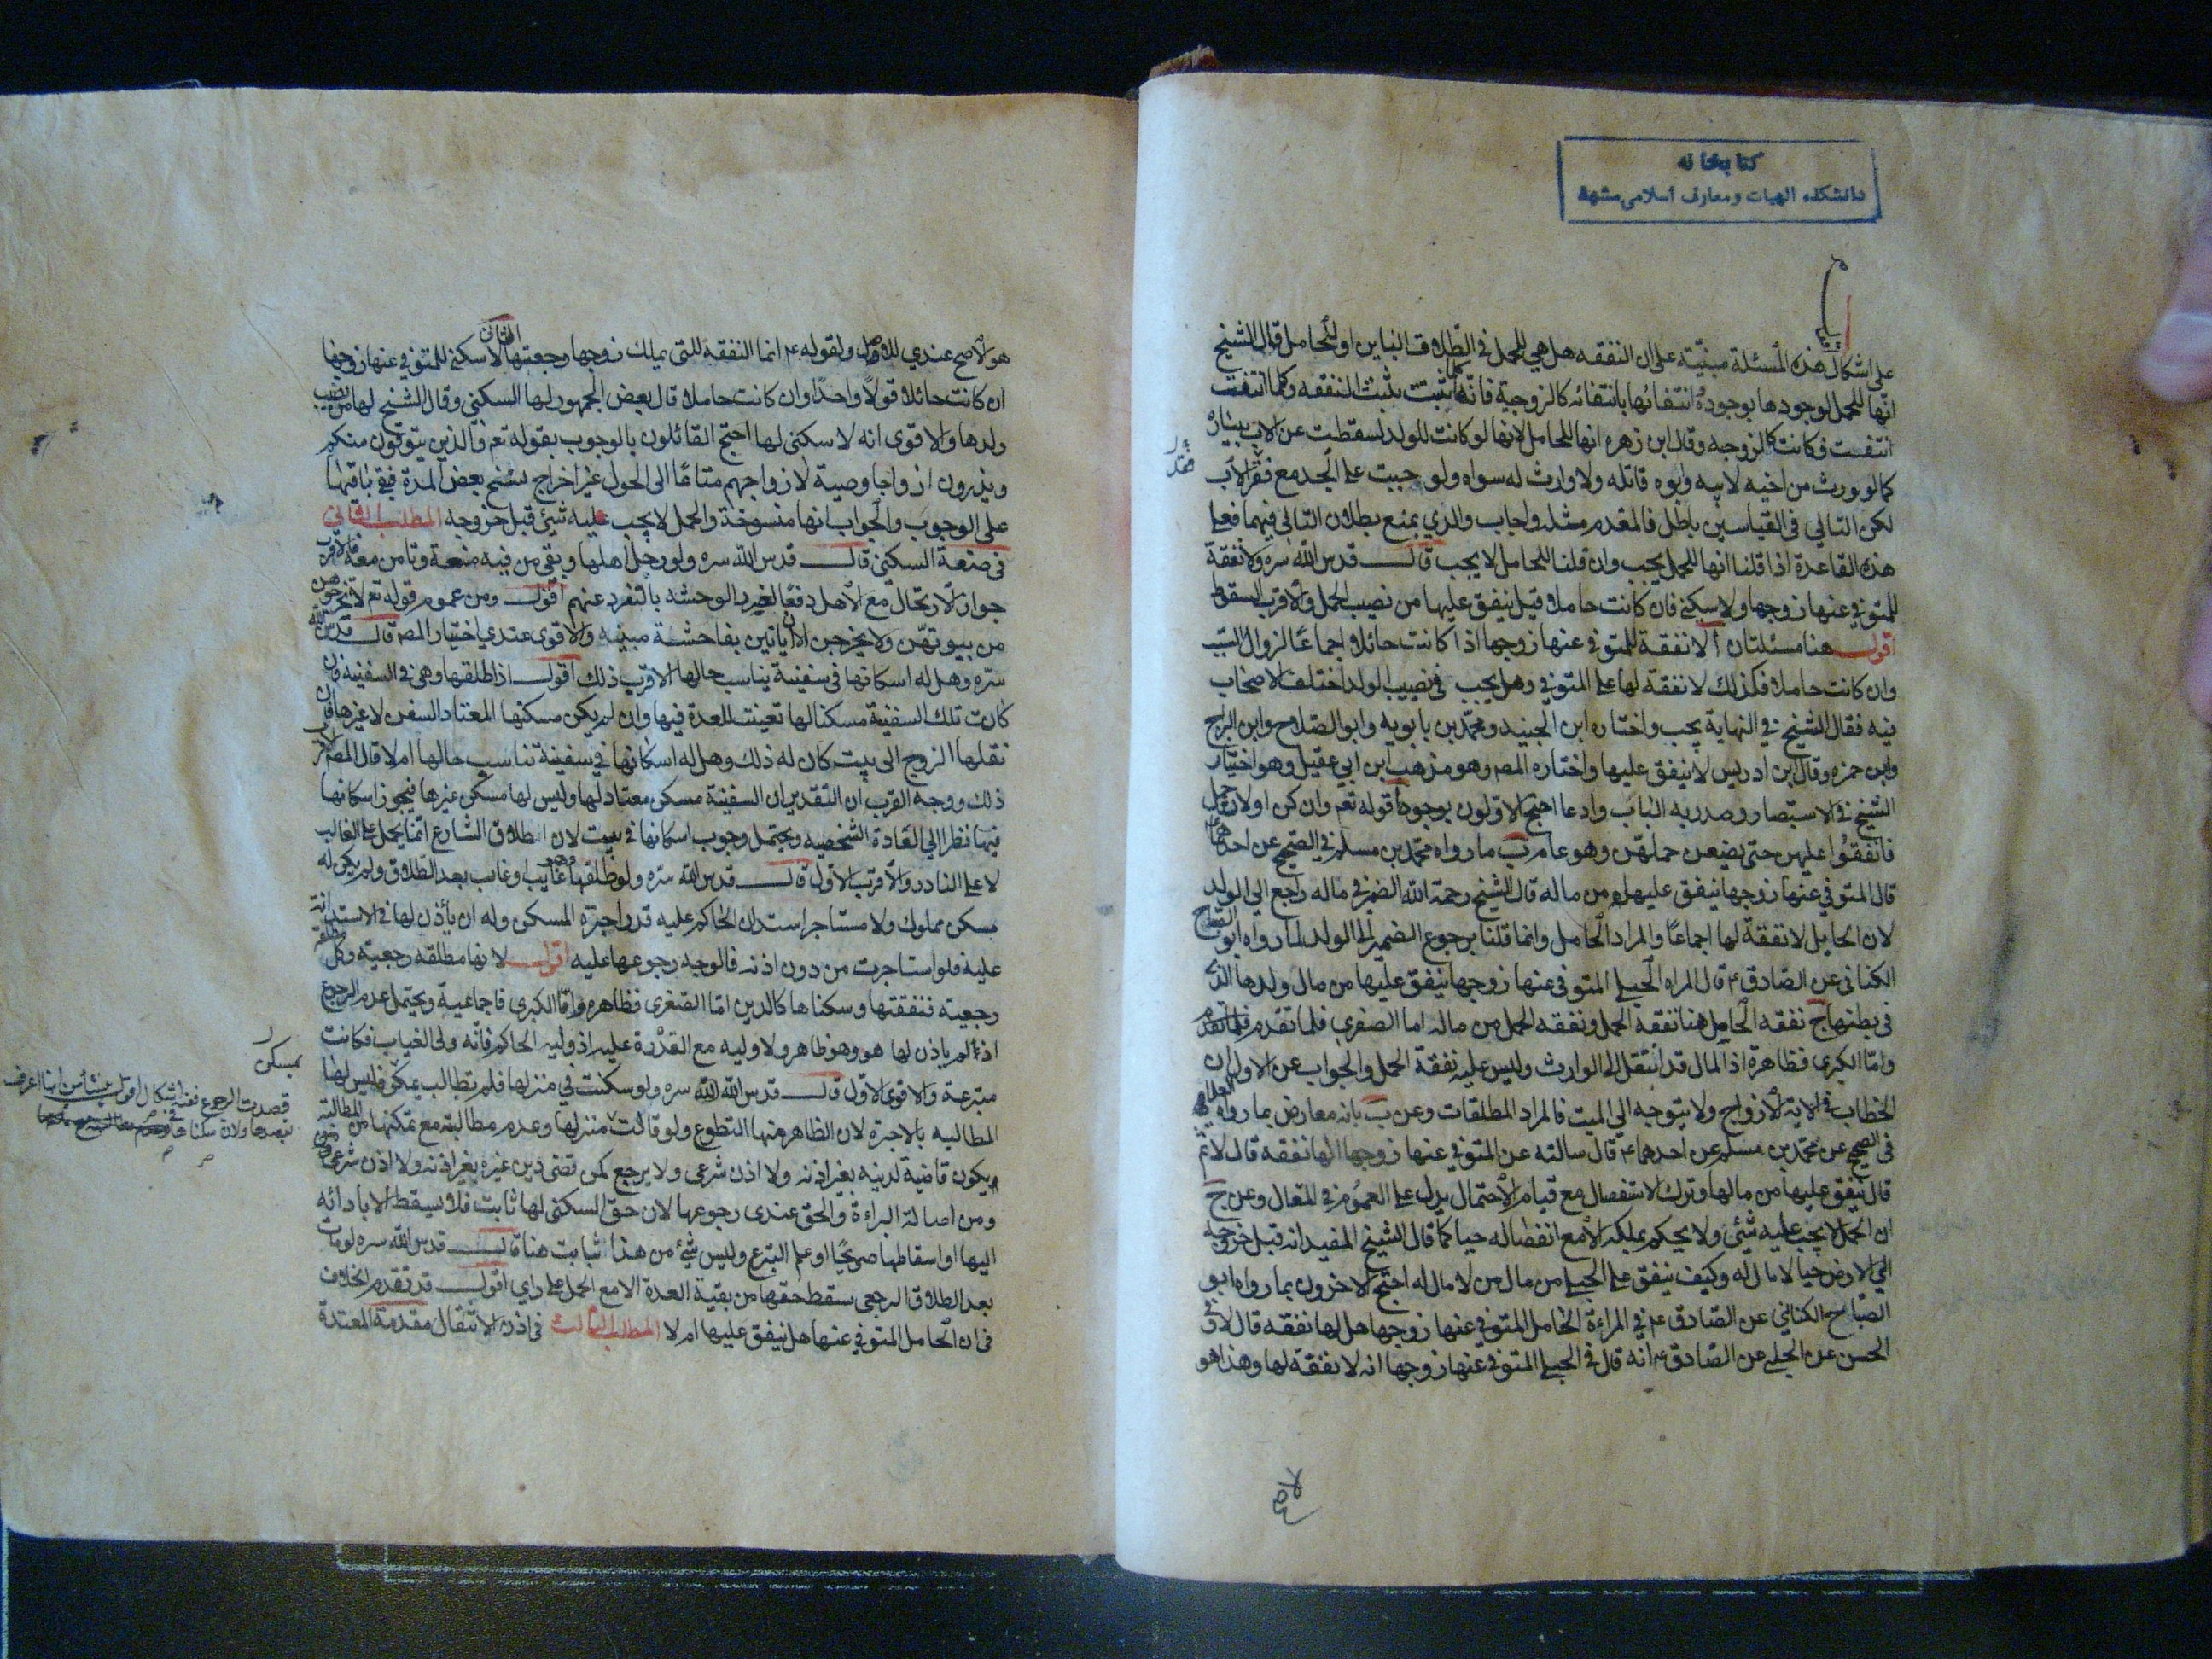 كتابخانه
دانشكده الهيات ومعارف اسلامى مشهد
على اشكال هذه المسئلة مبنية على ان النفقه هل هي للحمل في الطلاق البائن او للحامل قال الشيخ
انها للحمل لوجودها بوجوده وانتفائها بانتفائه كالزوجية فانها كلما ثبتت ثبت النفقه وكلما انتفت
انتفت فكانت كالزوجه وقال ابن زهره انها للحامل لانها لو كانت للولد لسقطت عن الاب بيساره
كما لو ورث من اخيه لابيه وابوه قاتله ولا وارث له سواه ولو جبت على الجد مع فقر الاب
لكن التالي في القياسين باطل فالمقدم مثله واجاب والدي بمنع بطلان التالي فيهما فعلى
هذه القاعدة اذا قلنا انها للحمل يجب وان قلنا للحامل لا يجب قال قدس الله سره ولا نفقة
للمتوفي عنها زوجها ولا سكنى فان كانت حاملا قيل ينفق عليها من نصيب الحمل والاقرب السقوط
اقول هنا مسئلتان أ لا نفقة للمتوفي عنها زوجها اذا كانت حائلا اجماعا لزوال السبب
وان كانت حاملا فكذلك لا نفقة لها على المتوفي وهل يجب في نصيب الولد اختلف الاصحاب
فيه فقال الشيخ في النهاية يجب واختاره ابن الجنيد ومحمد بن بابويه وابو الصلاح وابن البراج
وابن حمزه وقال ابن ادريس لا ينفق عليها واختاره المص وهو مذهب ابن ابي عقيل وهو اختيار
الشيخ في الاستبصار وصدر به الباب وادعا احتج الاولون بوجوه أ قوله تع وان كن اولات حمل
فانفقوا عليهن حتى يضعن حملهن وهو عام ب ما رواه محمد بن مسلم في الصحيح عن احدهما
قال المتوفي عنها زوجها ينفق عليها من ماله قال الشيخ رحمة الله الضمير في ماله راجع الى الولد
لان الحايل لا نفقة لها اجماعا والمراد الحامل وانما قلنا برجوع الضمير الى الولد لما رواه ابو الصباح
الكناني عن الصادق ع قال المراه الحبلى المتوفى عنها زوجها ينفق عليها من مال ولدها الذي
في بطنها ج نفقه الحامل هنا نفقة الحمل ونفقه الحمل من ماله اما الصغرى فلما تقدم
واما الكبرى فظاهرة اذ المال قد انتقل الى الوارث وليس عليه نفقة الحمل والجواب عن الاول ان
الخطاب في الاية للازواج ولا يتوجه الى الميت فالمراد المطلقات وعن ب بانه معارض بما رواه العلا
في الصحيح عن محمد بن مسلم عن احدهما ع قال سالته عن المتوفي عنها زوجها الها نفقه قال لا ثم
قال ينفق عليها من مالها وترك الاستفصال مع قيام الاحتمال يدل على العموم في المقال وعن ج
ان الحمل لا يجب عليه شئى ولا يحكم بملكه الا مع انفصاله حيا كما قال الشيخ المفيد انه قبل خروجه
الى الارض حيا لا مال له وكيف ينفق على الحبلى من مال من لا مال له احتج الاخرون بما رواه ابو
الصباح الكناني عن الصادق ع في المراءة الحامل المتوفي عنها زوجها هل لها نفقه قال لا وفي
الحسن عن الحلبي عن الصادق ع انه قال في الحبلى المتوفي عنها زوجها انه لا نفقة لها وهذا هو
هو الاصح عندي للاصل ولقوله ع انما النفقة للتى يملك زوجها رجعتها الثانى لا سكنى للمتوفي عنها زوجها
ان كانت حائلا قولا واحدا وان كانت حاملا قال بعض الجمهور لها السكنى وقال الشيخ لها من نصيب
ولدها والاقوى انه لا سكنى لها احتج القائلون بالوجوب بقوله تع والذين يتوفون منكم
ويذرون ازواجا وصية لازواجهم متاعا الى الحول غير اخراج نسخ بعض المدة فبقى باقيها
على الوجوب والجواب انها منسوخة والحمل لا يجب عليه شئ قبل خروجه المطلب الثاني
في صفة السكنى قال قدس الله سره ولو رحل اهلها وبقى من فيه منعة وتامن معه فالاقرب
جواز الارتحال مع الاهل دفعا لضرر الوحشه بالتفرد عنهم اقول ومن عموم قوله تع لا تخرجوهن
من بيوتهن ولا يخرجن الا ان ياتين بفاحشة مبينه والاقوى عندي اختيار المص قال قدس الله
سره وهل له اسكانها في سفينة يناسب حالها الاقرب ذلك اقول اذا طلقها وهى في السفينه فان
كانت تلك السفينة مسكنا لها تعينت للعدة فيها وان لم يكن مسكنها المعتاد السفن لا غيرها فان
نقلها الزوج الى بيت كان له ذلك وهل له اسكانها في سفينة تناسب حالها ام لا قال المص الاقرب
ذلك ووجه القرب ان التقدير ان السفينة مسكن معتاد لها وليس لها مسكن غيرها فيجوز اسكانها
فيها نظرا الى العادة الشخصيه ويحتمل وجوب اسكانها في بيت لان اطلاق الشارع انما يحمل على الغالب
لا على النادر والاقرب الاول قال قدس الله سره ولو طلقها غايب او غاب بعد الطلاق ولم يكن له
مسكن مملوك ولا مستاجر استدان الحاكم عليه قدر اجرة المسكن وله ان يأذن لها في الاستدانة
عليه فلو استاجرت من دون اذنه فالوجه رجوعها عليه اقول لانها مطلقه رجعية وكل مطلقة
رجعية فنفقتها وسكناها كالدين اما الصغرى فظاهره واما الكبرى فاجماعية ويحتمل عدم الرجوع
اذا لم ياذن لها هو وهو ظاهر ولا وليه مع القدرة عليه اذ وليه الحاكم فانه ولى الغياب فكانت
متبرعة والاقوى الاول قال قدس الله الله سره ولو سكنت في منزلها فلم تطالب بمسكن فليس لها
المطالبه بالاجرة لان الظاهر منها التطوع ولو قالت
ويكون قاضية لدينه بغير اذنه ولا اذن شرعى ولا يرجع كمن قضى دين غيره بغير اذنه ولا اذن شرعى
ومن اصالة البراءة والحق عندى رجوعها لان حق السكنى لها ثابت فلا يسقط الا بادائه
اليها او اسقاطها صريحا او علم التبرع وليس شئ من هذا ثابت هنا قال قدس الله سره لو مات
بعد الطلاق الرجعي سقط حقها من بقية العدة الا مع الحمل على راي اقول قد تقدم الخلاف
في ان الحامل المتوفي عنها هل ينفق عليها ام لا المطلب الثالث في اذن الانتقال مقدمة المعتدة
بمسكن
قصدت الرجوع ففيه اشكال اقول ينشأ من انها اعرف
بقصدها ولان سكناها